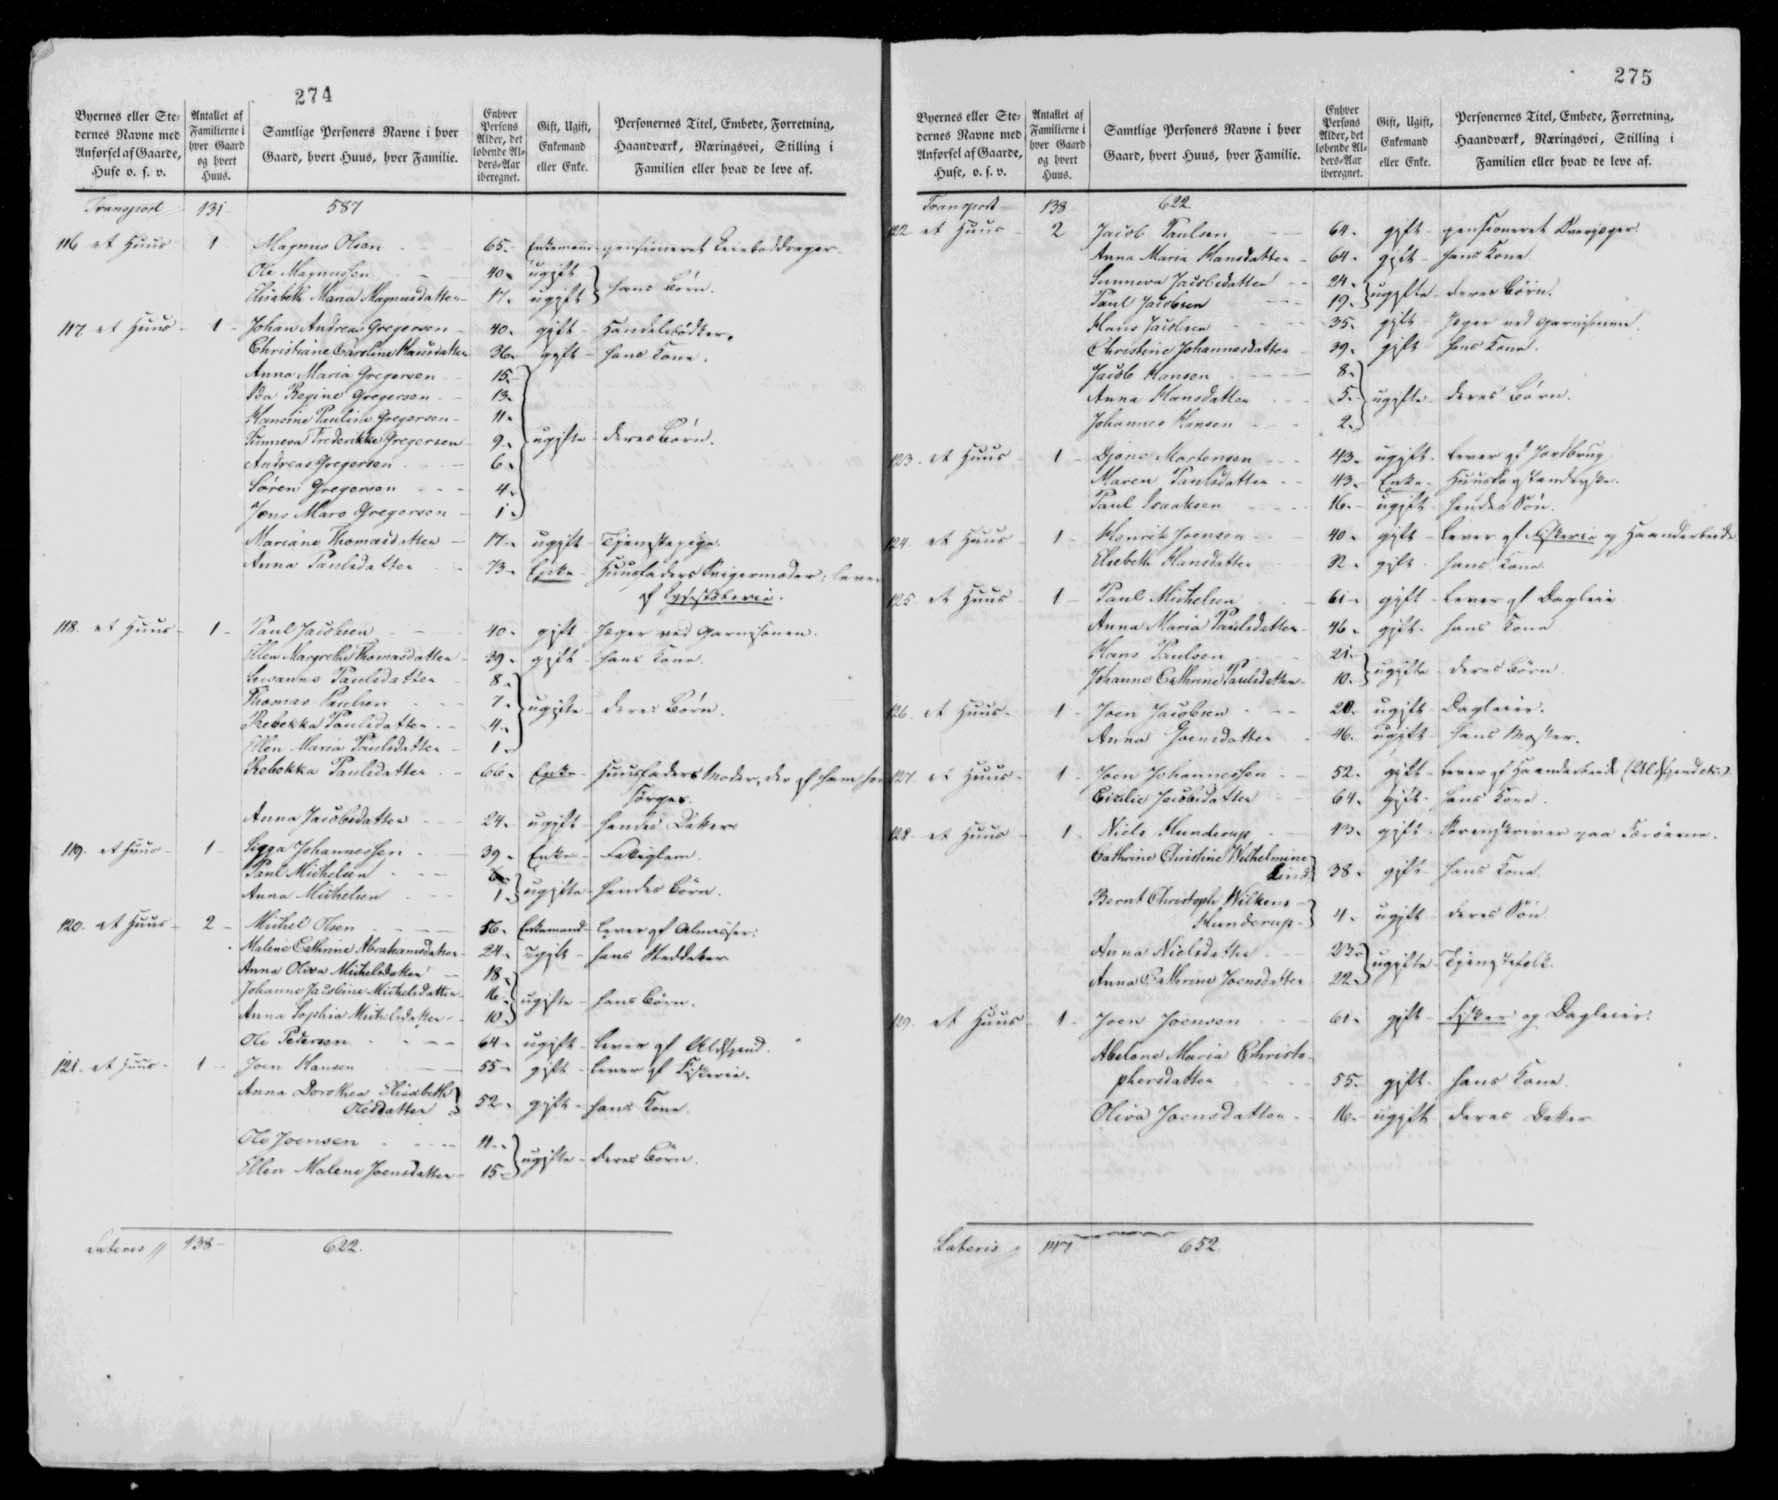 274
Byernes eller Ste-
dernes Navne med
Anførsel af Gaarde,
Huse o. s. v.
Antallet af
Familierne i
hver Gaard
og hvert
Huus.
Samtlige Personers Navne i hver
Gaard, hvert Huus, hver Familie.
Enhver
Persons
Alder, det
løbende Al-
ders-Aar
iberegnet.
Gift, Ugift,
Enkemand
eller Enke.
Personernes Titel, Embede, Forretning,
Haandværk, Næringsvei, Stilling i
Familien eller hvad de leve af.
Transport 131 587
116 et Huus 1 Magnus Olsen 65 Enkemand pensioneret
Ole Magnussen 40 ugift
Elisabeth Maria Magnusdatter 17 ugift hans Børn.
117 et Huus 1 Johan Andreas Gregersen 40 gift Handelsbødker.
Christiane Caroline Hansdatter 36 gift hans Kone.
Anna Maria Gregersen 15
Ida Regine Gregersen 13
Hansine Paulina Gregersen 11
Sunneva Frederikke Gregersen 9 ugifte deres Børn.
Andreas Gregersen 6
Søren Gregersen 4
Jens Marc Gregersen 1
Mariane Thomasdatter 17 ugift Tjenestepige.
Anna Paulsdatter 73 Enke Huusfaders Svigermoder, lever
af
118. et Huus 1 Paul Jacobsen 40 gift Jæger ved Garnisonen.
Ellen Margrethe Thomasdatter 39 gift hans Kone.
Susanne Paulsdatter 8
Thomas Paulsen 7 ugifte deres Børn.
Rebekka Paulsdatter 4
Ellen Maria Paulsdatter 1
Rebekka Paulsdatter 66 Enke Huusfaders Moder, der af ham
sørges.
Anna Jacobsdatter 24 ugift hendes Datter
119. et Huus 1 Sigga Johannessen 39 Enke Fattiglem.
Paul Michelsen
Anna Michelsen 1 ugifte hendes Børn.
120. et Huus 2 Michel Olsen 56 Enkemand lever af Almisser.
Malene Cathrine Abrahamsdatter 24 ugift hans Steddatter
Anna Oliva Michelsdatter 18
Johanne Jacobine Michelsdatter 16 ugifte hans Børn.
Anna Sophia Michelsdatter 10
Ole Pedersen 64 ugift lever af Uldspind.
121. et Huus 1 Joen Hansen 55 gift lever af Fiskerie.
Anna Dorothea Elisabeth
Olesdatter 52 gift hans Kone.
Ole Joensen 11
Ellen Malene Joensdatter 15 ugifte deres Børn.
Lateris 138 622.
275
Byernes eller Ste-
dernes Navne med
Anførsel af Gaarde,
Huse, o. s. v.
Antallet af
Familierne i
hver Gaard
og hvert
Huus.
Samtlige Personers Navne i hver
Gaard, hvert Huus, hver Familie.
Enhver
Persons
Alder, det
løbende Al-
ders-Aar
iberegnet.
Gift, Ugift,
Enkemand
eller Enke.
Personernes Titel, Embede, Forretning,
Haandværk, Næringsvei, Stilling i
Familien eller hvad de leve af.
Transport 138 622
122 et Huus 2 Jacob Paulsen 64 gift pensioneret
Anna Maria Hansdatter 64 gift hans Kone
Sunneva Jacobsdatter 24
Paul Jacobsen 19 ugifte deres Børn.
Hans Jacobsen 35 gift Jæger ved Garnisonen.
Christine Johannesdatter 39 gift hans Kone.
Jacob Hansen 8
Anna Hansdatter 5 ugifte deres Børn.
Johannes Hansen 2
123. et Huus 1 Djone Mortensen 43 ugift lever af Jordbrug
Maren Paulsdatter 43 Enke
Paul Isaaksen 16 ugift hendes Søn.
124. et Huus 1 Henrik Joensen 40 gift lever af Fiskerie og Haandarbeide
Elsebeth Hansdatter gift hans Kone.
125. et Huus 1 Paul Michelsen 61 gift lever af Dagleie
Anna Maria Paulsdatter 46 gift hans Kone
Hans Paulsen 21
Johanne Cathrine Paulsdatter 10 ugifte deres Børn
126. et Huus 1 Joen Jacobsen ugift Dagleier.
Anna Joensdatter 46 ugift hans Moster.
127. et Huus 1 Joen Johannessen 52 gift lever af Haandarbeide
Cicilie Jacobsdatter 64 gift hans Kone.
128 et Huus 1 Niels Hunderup 43 gift Sorenskriver paa Færöerne.
Cathrine Christine Wilhelmine
Lind 38 gift hans Kone.
Bernt Christoph Wilkens
Hunderup 4 ugift deres Søn
Anna Nielsdatter 23
Anna Cathrine Joensdatter 22 ugifte Tjenestefolk.
129. et Huus 1 Joen Joensen 61 gift Fisker og Dagleier.
Abelone Maria Christo-
phersdatter 55 gift hans Kone.
Oliva Joensdatter 16 ugift deres Datter
Lateris 147 652.